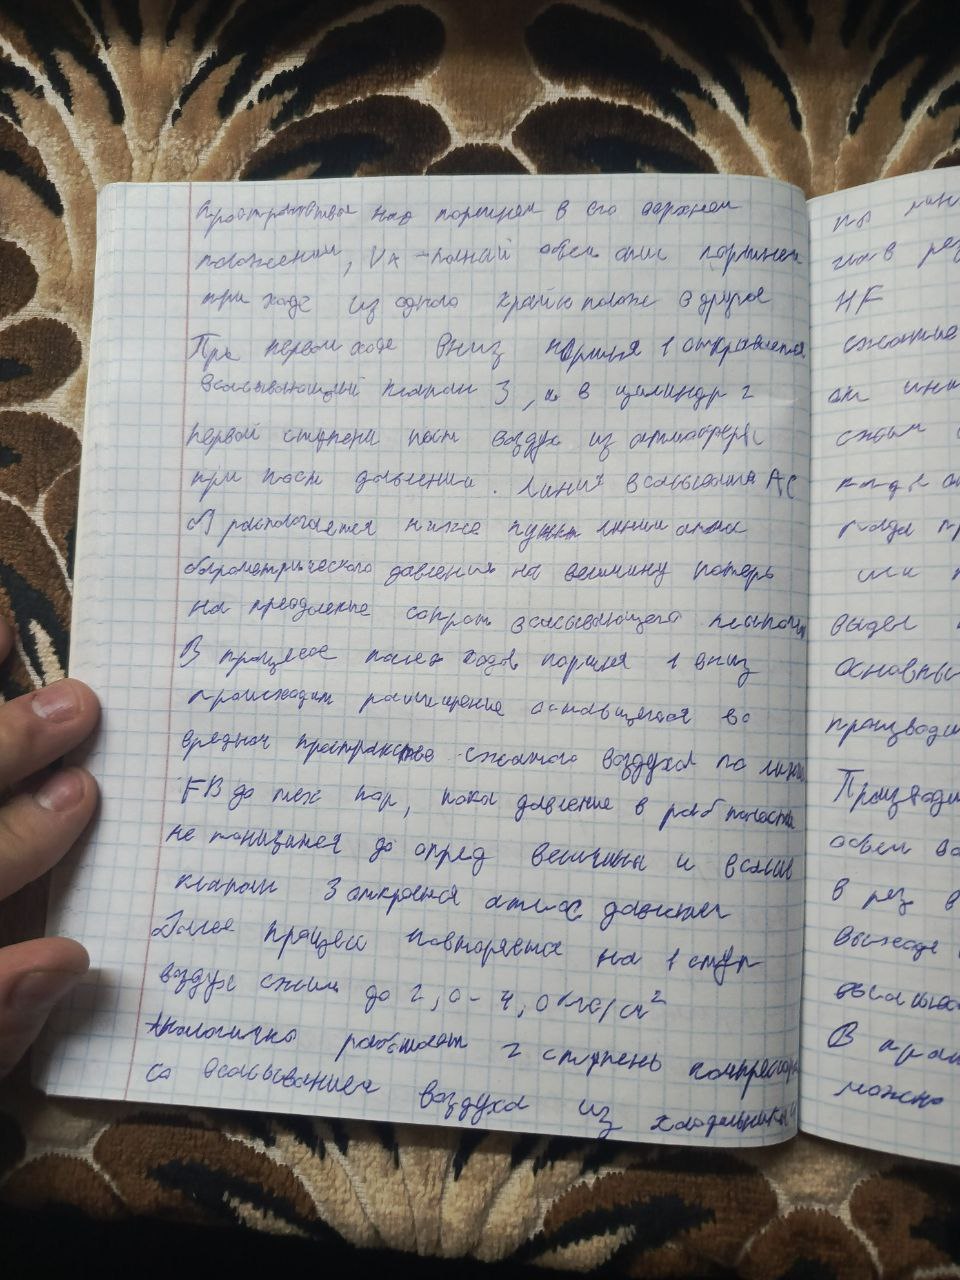 пространства над поршнем в его верхнем
положении, VА - полный объем опис поршнем
при ходе из одного крайн полож в другое
При первом ходе вниз поршня 1 открывается
всасывающий клапан 3, и в цилиндр 2
первой ступени пост воздух из атмосферы
при пост давлении. Линия всасывания АС
располагается ниже пункт линии атм
барометрического давления на величину потерь
на преодоление сопрот всасывающего
В процессе послед ходов поршня 1 вниз
происходит расширение оставшегося во
вредном пространстве сжатого воздуха по линии
FB до тех пор, пока давление в раб полости
не понизится до опред величины и всасыв
клапан 3 откроется атмос давлен
Далее процесс повторяется на 1 ступ
воздух сжим до 2,0 - 4,0 кгс/см²
Аналогично работает 2 ступень компрессора
со всасыванием воздуха из холодильника
по лин
в рез
HF
сжатие
сжим
выдел
основны
производи
Производи
объем во
в рез в
выходе
всасыва
В
можно